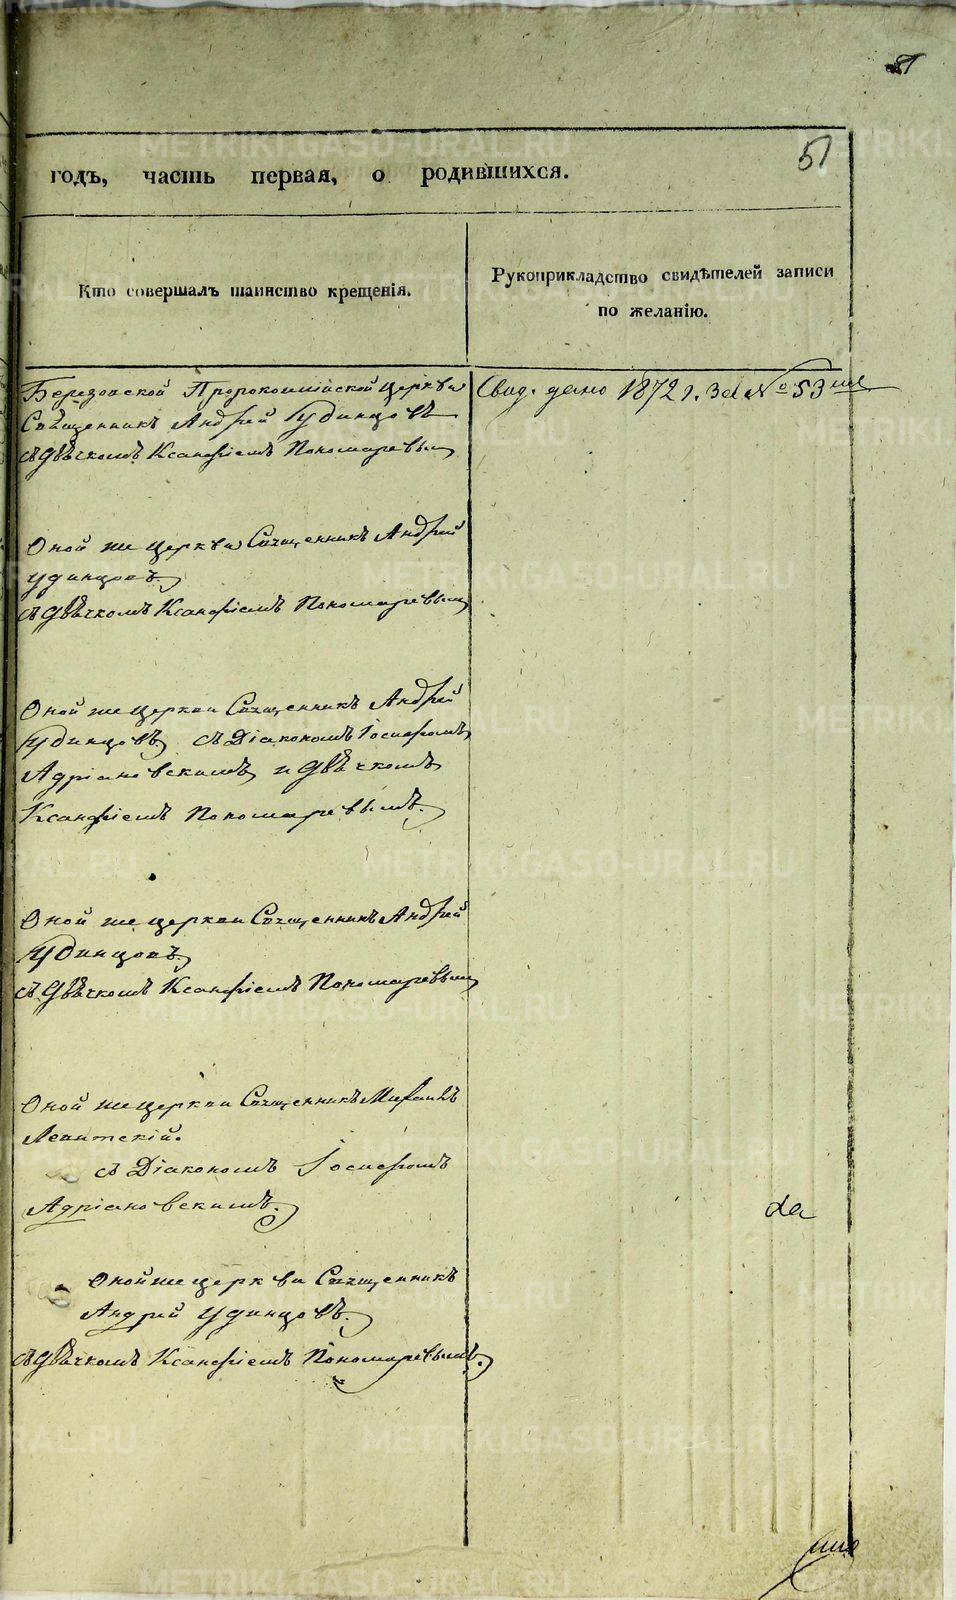 51
годъ, часть первая, о родившихся.
Кто совершалъ таинство крещенія.
Рукоприкладство свидѣтелей записи
по желанію.
Березовской Пророкоилійской церкви
Священникъ Андрей Удинцовъ
съ Дьячкомъ Ксанфіемъ Пономаревым
Свид. дано 1872 г. За № 53
Оной же церкви Священникъ Андрей
Удинцовъ
съ Дьячкомъ Ксанфіемъ Пономаревым
Оной же церкви Священникъ Андрей
Удинцовъ съ Діакономъ Іосифомъ
Адріановскимъ и Дьячкомъ
Ксанфіемъ Пономаревымъ.
Оной же церкви Священникъ Андрей
Удинцовъ
съ Дьячкомъ Ксанфіемъ Пономаревым
Оной же церкви Священникъ Михаилъ
Левитскій.
съ Діакономъ Іосифомъ
Адріановскимъ.
Оной же церкви Священникъ
Андрей Удинцовъ.
съ Дьячкомъ Ксанфіемъ Пономаревымъ.
METRIKI.GASO-URAL.RU